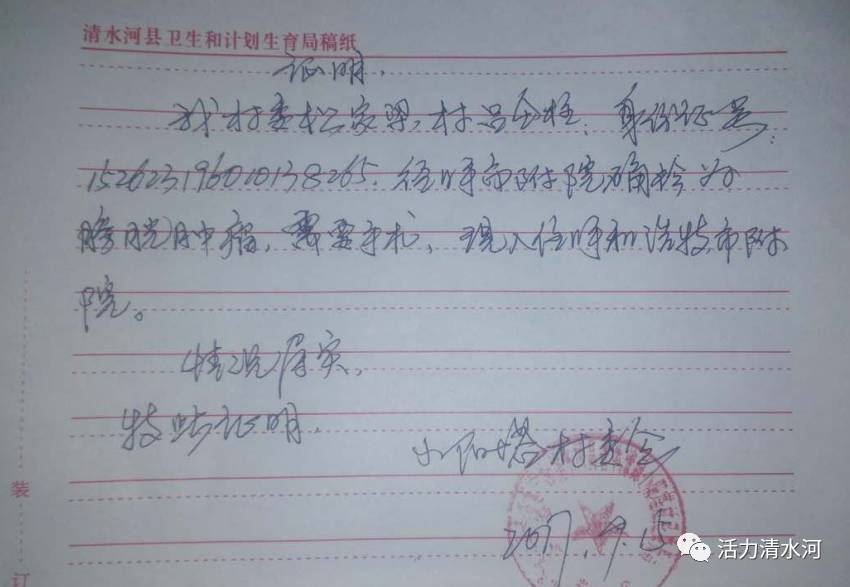 清水河县卫生和计划生育局稿纸
证明.
我村委松家梁村吕全柱.身份证号:
152623196010138265.经呼市附院确检为
膀胱肿瘤,需要手术,现入住呼和浩特市附
院。
情况属实.
特此证明.
村委会
2017.9.15
装
订
活力清水河